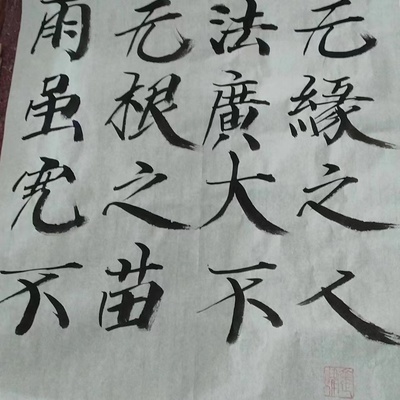 雨虽宽不
无根之苗
法廣大不
无緣之人